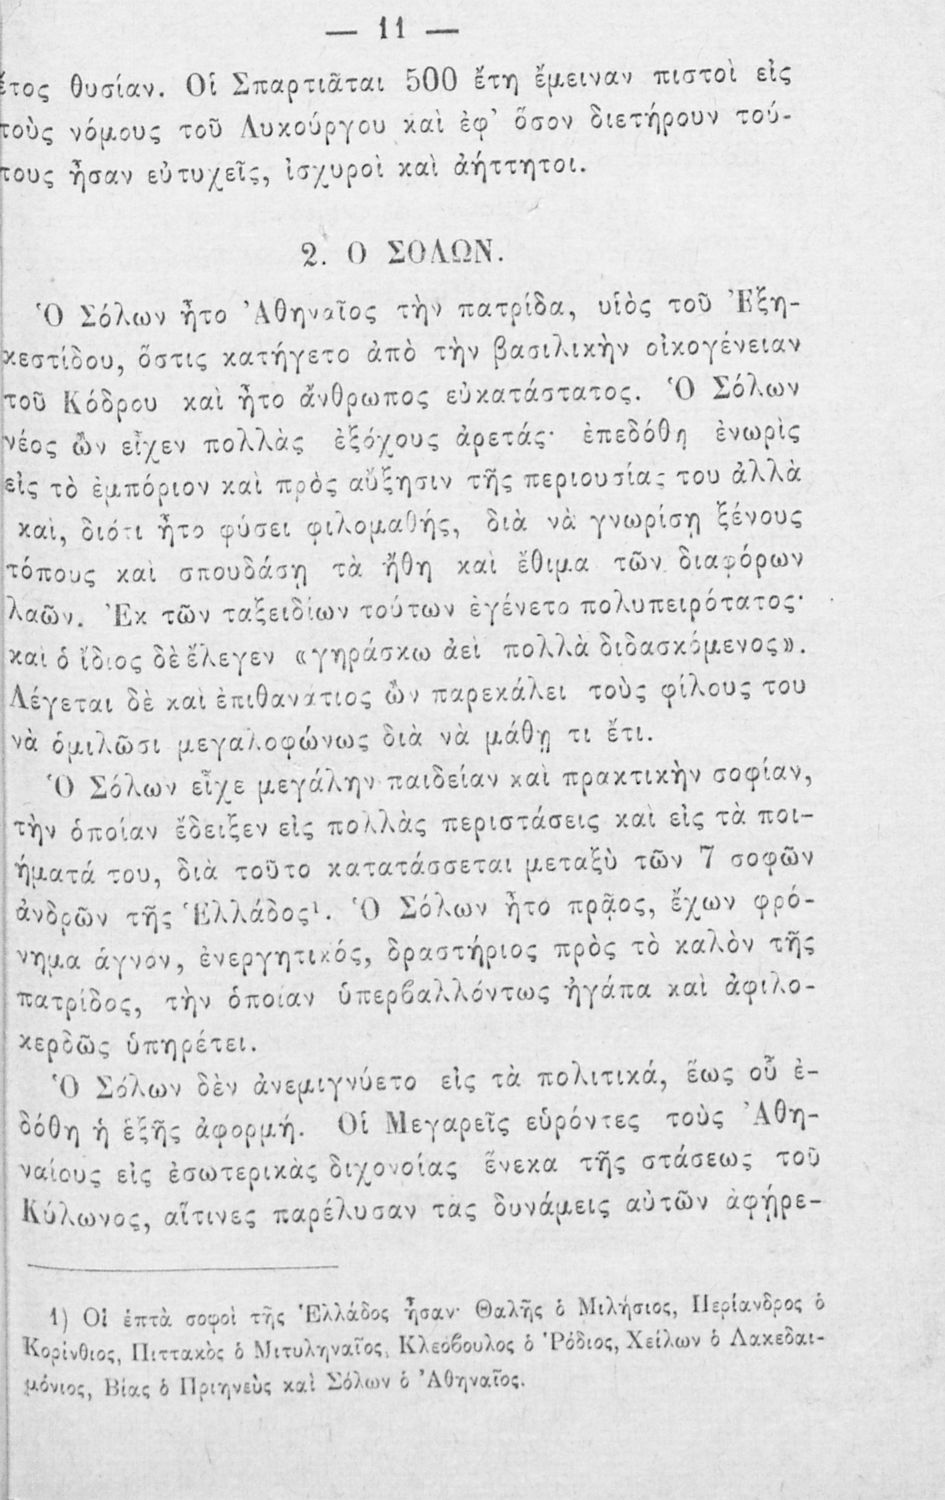 — 11 —
ἔτος θυσίαν. Οἱ Σπαρτιᾶται 500 ἔτη ἔμειναν πιστοὶ εἰς
τοὺς νόμους τοῦ Λυκούργου καὶ ἐφ᾿ ὅσον διετήρουν τού-
τους ἦσαν εὐτυχεῖς, ἰσχυροὶ καὶ ἀήττητοι.
2. Ο ΣΟΛΩΝ.
Ὁ Σόλων ἦτο Ἀθηναῖος τὴν πατρίδα, υἱὸς τοῦ Ἐξη-
κεστίδου, ὅστις κατήγετο ἀπὸ τὴν βασιλικὴν οἰκογένειαν
τοῦ Κόδρου καὶ ἦτο ἄνθρωπος εὐκατάστατος. Ὁ Σόλων
νέος ὢν εἶχεν πολλὰς ἐξόχους ἀρετάς· ἐπεδόθη ἐνωρὶς
εἰς τὸ ἐμπόριον καὶ πρὸς αὔξησιν τῆς περιουσίας του ἀλλὰ
καὶ, διότι ἦτο φύσει φιλομαθής, διὰ νὰ γνωρίσῃ ξένους
τόπους καὶ σπουδάσῃ τὰ ἤθη καὶ ἔθιμα τῶν διαφόρων
λαῶν. Ἐκ τῶν ταξειδίων τούτων ἐγένετο πολυπειρότατος·
καὶ ὁ ἴδιος δὲ ἔλεγεν «γηράσκω ἀεὶ πολλὰ διδασκόμενος».
Λέγεται δὲ καὶ ἐπιθανάτιος ὢν παρεκάλει τοὺς φίλους του
νὰ ὁμιλῶσι μεγαλοφώνως διὰ νὰ μάθῃ τι ἔτι.
Ὁ Σόλων εἶχε μεγάλην παιδείαν καὶ πρακτικὴν σοφίαν,
τὴν ὁποίαν ἔδειξεν εἰς πολλὰς περιστάσεις καὶ εἰς τὰ ποι-
ήματά του, διὰ τοῦτο κατατάσσεται μεταξὺ τῶν 7 σοφῶν
ἀνδρῶν τῆς Ἑλλάδος¹. Ὁ Σόλων ἦτο πρᾷος, ἔχων φρό-
νημα ἁγνόν, ἐνεργητικός, δραστήριος πρὸς τὸ καλὸν τῆς
πατρίδος, τὴν ὁποίαν ὑπερβαλλόντως ἠγάπα καὶ ἀφιλο-
κερδῶς ὑπηρέτει.
Ὁ Σόλων δὲν ἀνεμιγνύετο εἰς τὰ πολιτικά, ἕως οὗ ἐ-
δόθη ἡ ἑξῆς ἀφορμή. Οἱ Μεγαρεῖς εὑρόντες τοὺς Ἀθη-
ναίους εἰς ἐσωτερικὰς διχονοίας ἕνεκα τῆς στάσεως τοῦ
Κύλωνος, αἵτινες παρέλυσαν τας δυνάμεις αὐτῶν ἀφῄρε-
1) Οἱ ἑπτὰ σοφοὶ τῆς Ἑλλάδος ἦσαν· Θαλῆς ὁ Μιλήσιος, Περίανδρος ὁ
Κορίνθιος, Πιττακὸς ὁ Μιτυληναῖος, Κλεόβουλος ὁ Ῥόδιος, Χείλων ὁ Λακεδαι-
μόνιος, Βίας ὁ Πριηνεὺς καὶ Σόλων ὁ Ἀθηναῖος.